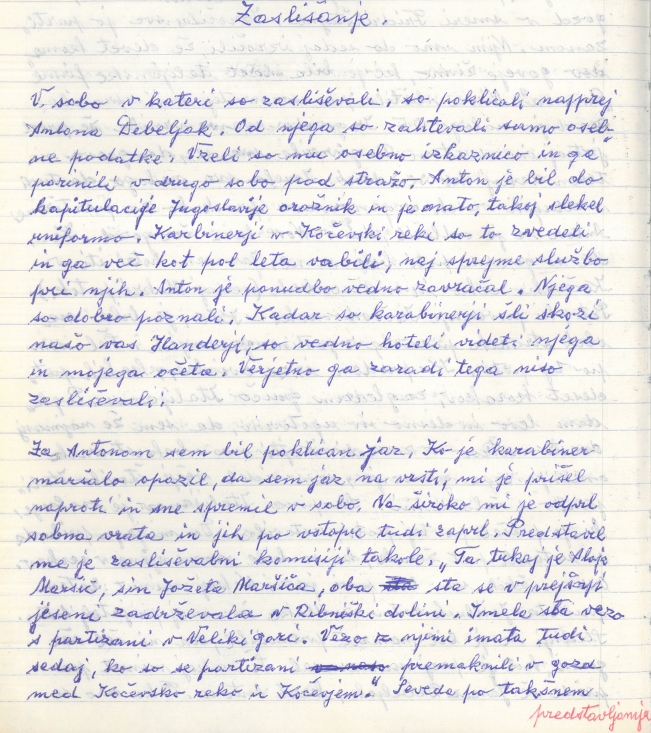 Zaslišanje.
V sobo v kateri so zasliševali, so poklicali najprej
Antona Debeljak. Od njega so zahtevali samo oseb-
ne podatke. Vzeli so mu osebno izkaznico in ga
porinili v drugo sobo pod stražo. Anton je bil do
kapitulacije Jugoslavije orožnik in je nato, takoj slekel
uniformo. Karbinerji v Kočevski reki so to zvedeli
in ga več kot pol leta vabili, naj sprejme službo
pri njih. Anton je ponudbo vedno zavračal. Njega
so dobro poznali. Kadar so karabinerji šli skozi
našo vas Handerji, so vedno hoteli videti njega
in mojega očeta. Verjetno ga zaradi tega niso
zasliševali.
Za Antonom sem bil poklican jaz. Ko je karabiner
maršalo opazil, da sem jaz na vrsti, mi je prišel
naproti in me spremil v sobo. Na široko mi je odprl
sobna vrata in jih po vstopu tudi zaprl. Predstavil
me je zasliševalni komisiji takole. „Ta tukaj je Alojz
Maršič, sin Jožeta Maršiča, oba sta se v prejšnji
jeseni zadrževala v Ribniški dolini. Imela sta vezo
s partizani v Veliki gori. Vezo z njimi imata tudi
sedaj, ko so se partizani premaknili v gozd
med Kočevsko reko in Kočevjem." Seveda po takšnem
predstavljanju